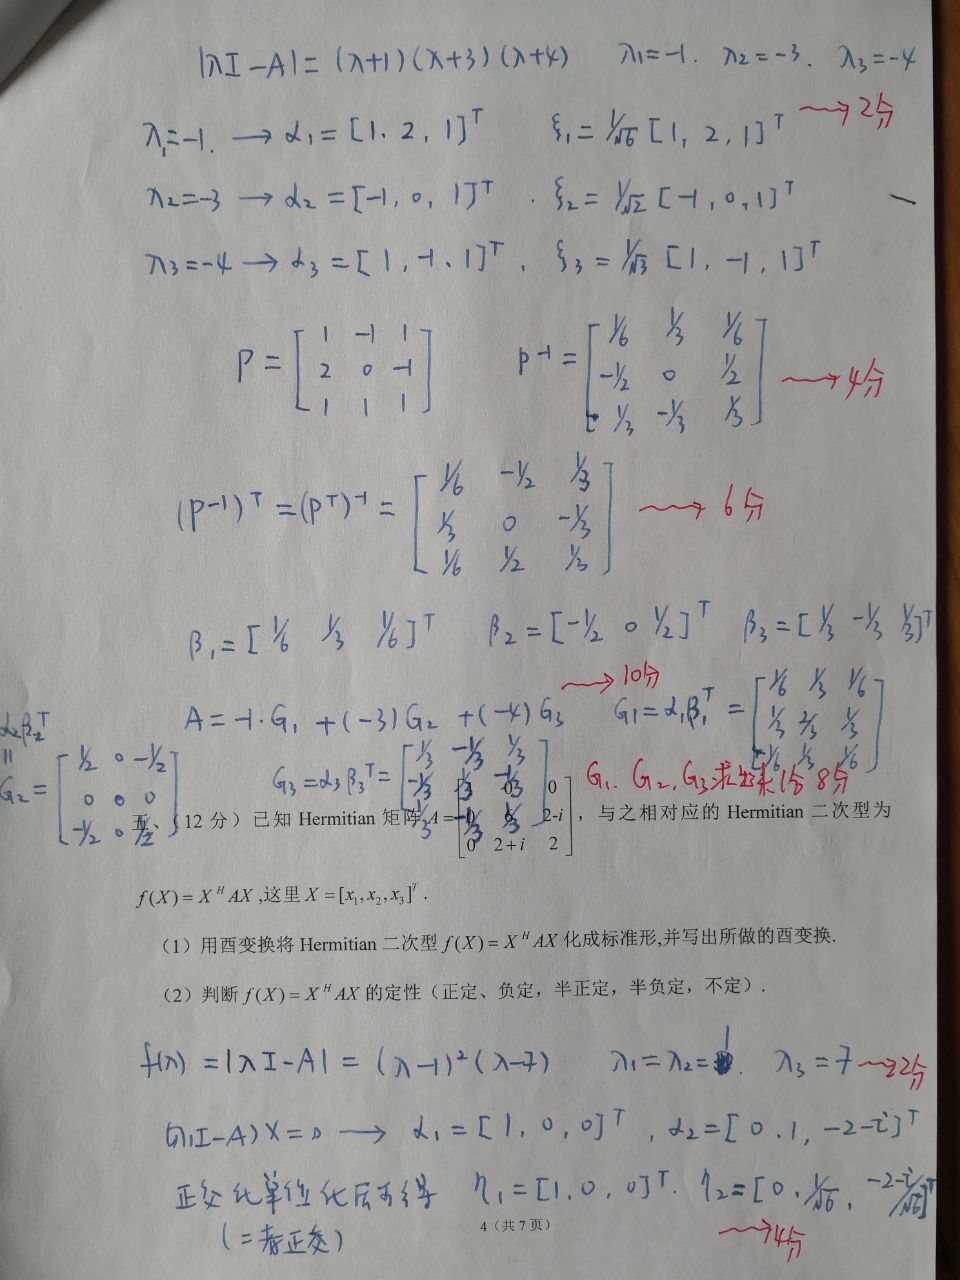 |λI-A| = (λ+1)(λ+3)(λ+4) λ1=-1. λ2=-3. λ3=-4
→2分
λ1=-1. → α1=[1. 2, 1]ᵀ ξ1=1/√6 [1, 2, 1]ᵀ
λ2=-3 → α2=[-1, 0, 1]ᵀ. ξ2=1/√2 [-1, 0, 1]ᵀ
λ3=-4 → α3=[1, -1, 1]ᵀ. ξ3=1/√3 [1, -1, 1]ᵀ
1 -1 1 1/6 1/3 1/6
P = 2 0 -1 P⁻¹ = -1/2 0 1/2 →4分
1 1 1 1/3 -1/3 1/3
1/6 -1/2 1/3
(P⁻¹)ᵀ=(Pᵀ)⁻¹= 1/3 0 -1/3 →6分
1/6 1/2 1/3
β1=[1/6 1/3 1/6]ᵀ β2=[-1/2 0 1/2]ᵀ β3=[1/3 -1/3 1/3]ᵀ
→10分
A=-1·G1+(-3)G2+(-4)G3 G1=α1β1ᵀ= 1/6 1/3 1/6
1/3 2/3 1/3
1/6 1/3 1/6
α2β2ᵀ
=
G2= 1/2 0 -1/2
0 0 0
-1/2 0 1/2
G3=α3β3ᵀ= 1/3 -1/3 1/3
-1/3 1/3 -1/3
1/3 -1/3 1/3
G1. G2, G3求出来1分 8分
1 0 0
五、(12 分)已知 Hermitian 矩阵 A= 0 6 2-i ,与之相对应的 Hermitian 二次型为
0 2+i 2
f(X)=XᴴAX,这里 X=[x₁,x₂,x₃]ᵀ.
(1)用酉变换将 Hermitian 二次型 f(X)=XᴴAX 化成标准形,并写出所做的酉变换.
(2)判断 f(X)=XᴴAX 的定性(正定、负定,半正定,半负定,不定).
f(λ)=|λI-A|=(λ-1)²(λ-7) λ1=λ2=1. λ3=7 →2分
(λ1I-A)X=0 → α1=[1, 0, 0]ᵀ, α2=[0. 1, -2-i]ᵀ
正交化单位化后可得 η1=[1, 0, 0]ᵀ. η2=[0, 1/√6, -2-i/√6]ᵀ
(二者正交) →4分
4(共 7 页)